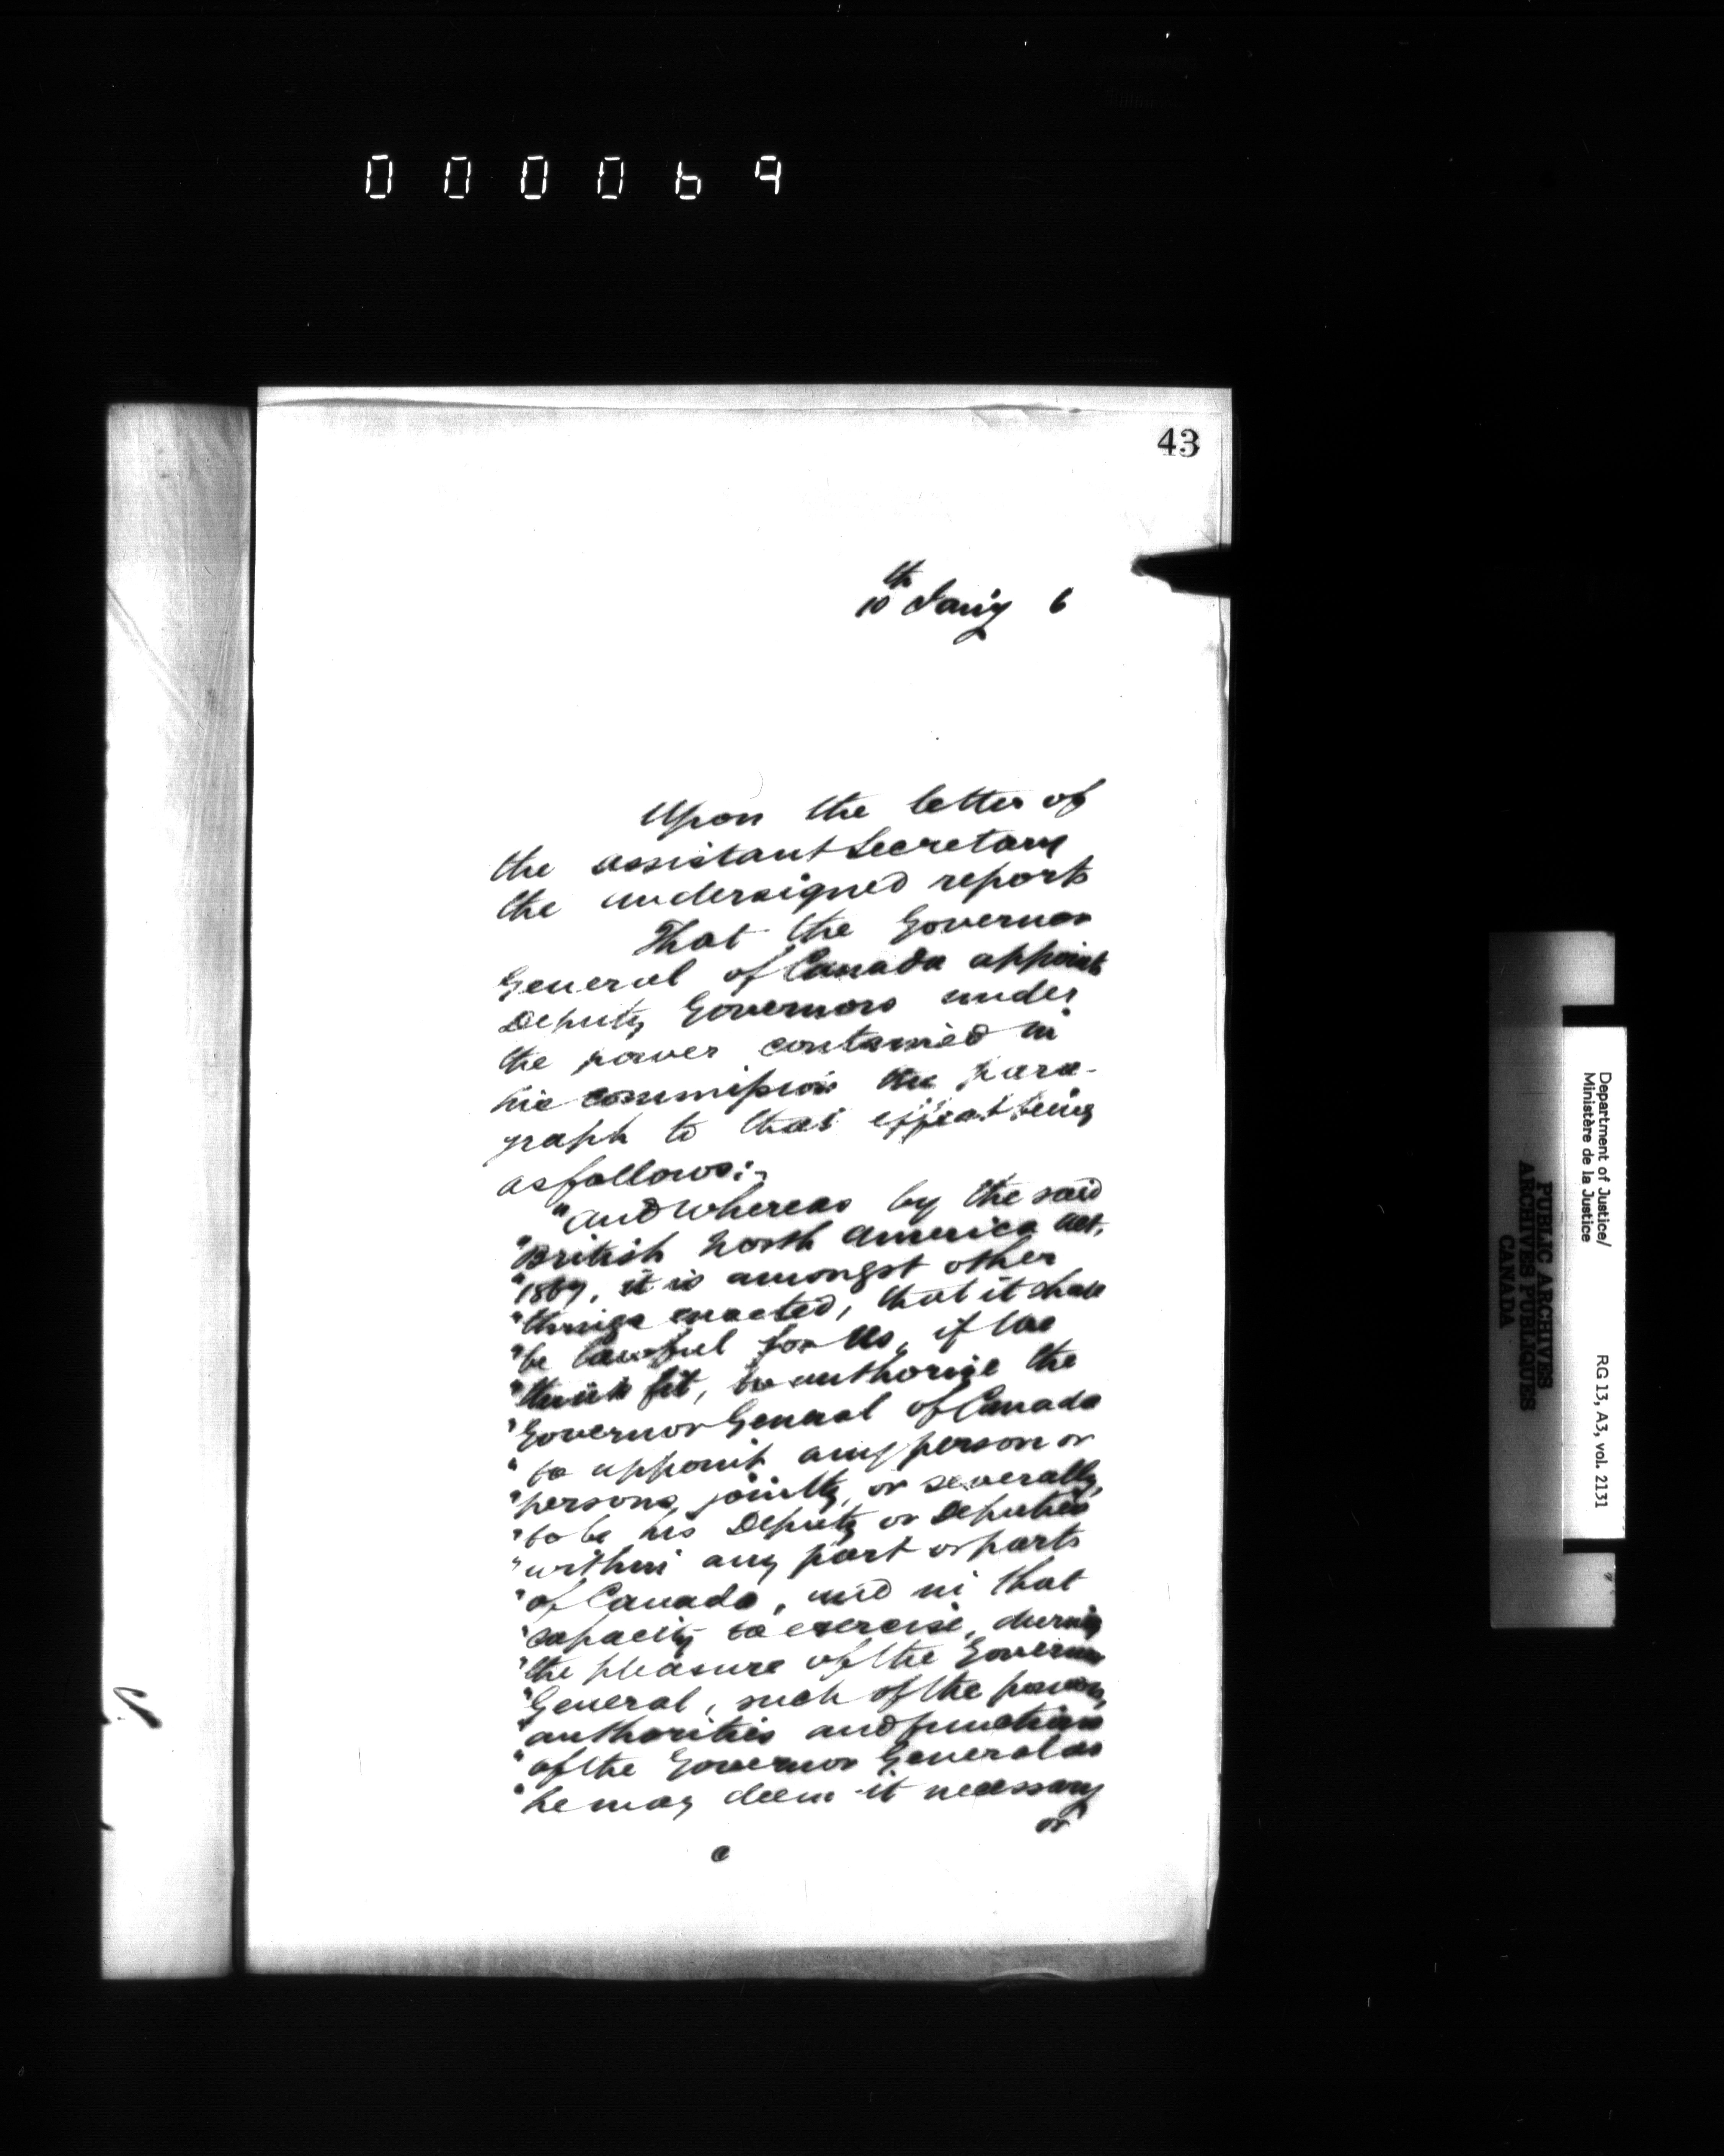 000069
43
10th Jan'y 6
Upon the letter of
the assistant Secretary
the undersigned reports
That the Governor
General of Canada appoints
Deputy Governors under
the power contained in
his commission the para-
graph to that effect being
as follows:-
"And whereas by the said
"British North America Act,
"1867, it is amongst other
"things enacted, that it shall
"be lawful for Us, if We
"think fit, to authorize the
"Governor General of Canada
"to appoint any person or
"persons, jointly, or severally,
"to be his Deputy or Deputies
"within any part or parts
"of Canada, and in that
"capacity to exercise, during
"the pleasure of the Governor
"General, such of the powers,
"authorities and functions
"of the Governor General as
"he may deem it necessary
or
Department of Justice/
Ministère de la Justice
RG 13, A3, vol. 2131
PUBLIC ARCHIVES
ARCHIVES PUBLIQUES
CANADA